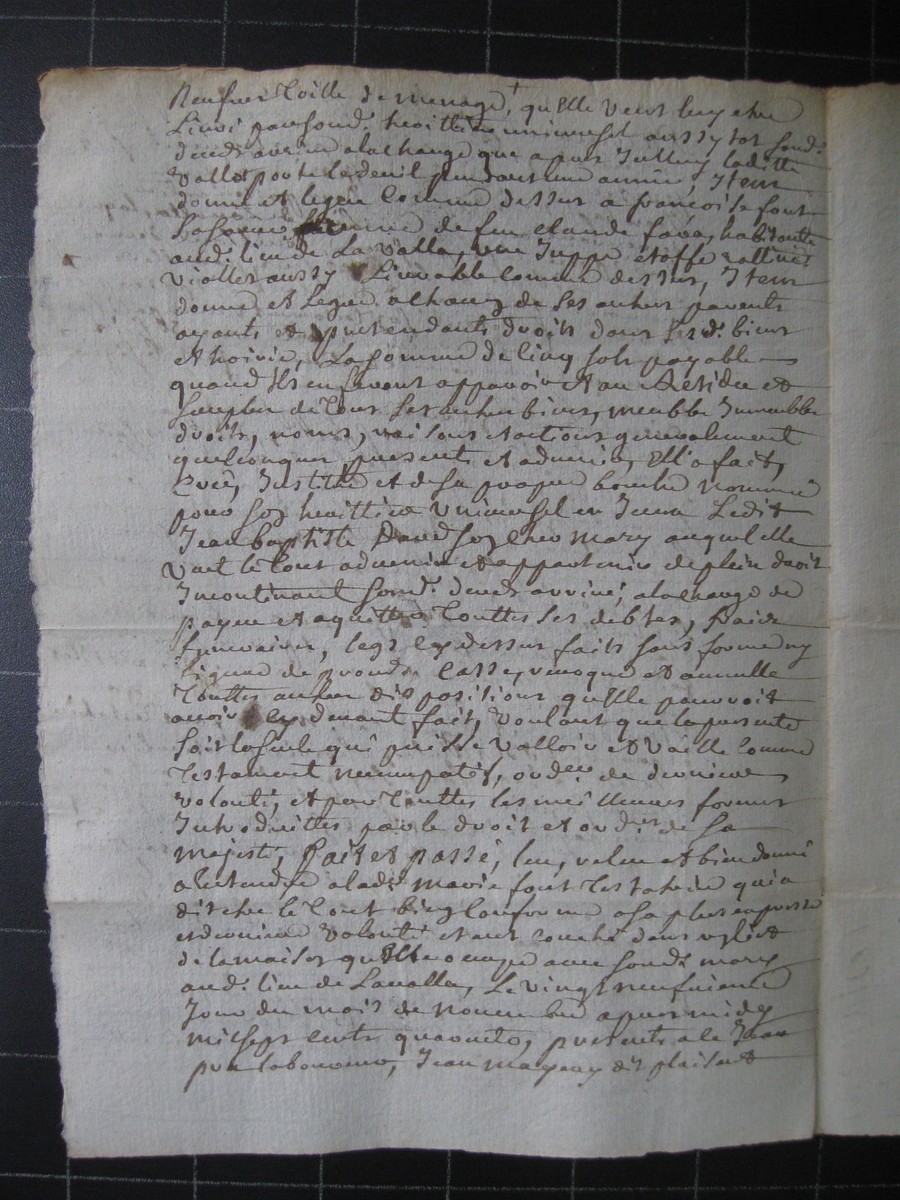 toille de menage, qu'Elle veut luy etre
Livré par sond. heritier universel aussy tot sond.
deceds arrivé a la charge que apres Icelluy laditte
Vallot porte le deuil pendant une année, Item
donne et legue comme dessus a francoise font
Sa femme de feu claude fava, habitante
aud. lieu de La Valla, une Juppe etoffe
aussy Livrable comme dessus, Item
donne et Legue a chacun de ses autres parents
ayants et pretendants droits dans Sesd. biens
et hoirie, La somme de Cinq sols payable
quand ils en feront apparoir et au Residu et
Surplus de tous Ses autres biens, meubles Immeubles
droits, noms, raisons et actions generalement
quelconques presents et advenir, Ell'a fait,
Creé, Institué et de sa propre bouche nommé
pour son heritier universel en Iceux Ledit
Jean baptiste David son cher mary auquel elle
Veut le tout advenir et appartenir de plein droit
Incontinant sond. deceds arrivé, a la charge de
payer et aquitter touttes ses debtes, fraix
funeraires, legs cy dessus faits sans forme ny
figure de procés. Casse, revoque et annulle
touttes autres dispositions qu'Elle pourroit
avoir cy devant fait, voulant que la presente
soit la seule qui puisse valloir et vaille comme
testament nuncupatif, ord.ce de derniere
volonté, et par touttes les meilleures formes
Introduittes par le droit et ord.ces de Sa
majesté, fait et passé, leu, releu et bien donné
a entendre a lad. marie font testatrice qui a
dit etre le tout bien conforme a sa plus expresse
et derniere volonté
de la maison qu'elle occupe avec sond. mary
aud. lieu de Lavalla, Le vingt neufvieme
Jour du mois de novembre apres midy
mil sept cents quarante, presents
Jean dit plaisant